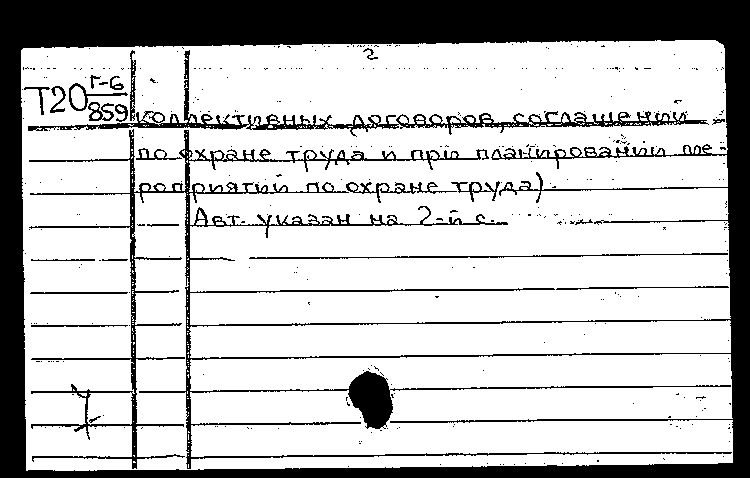 2
Т20 Г-6
859
коллективных договоров, соглашений
по охране труда и при планировании ме-
роприятий по охране труда)
Авт. указан на 2-й с.